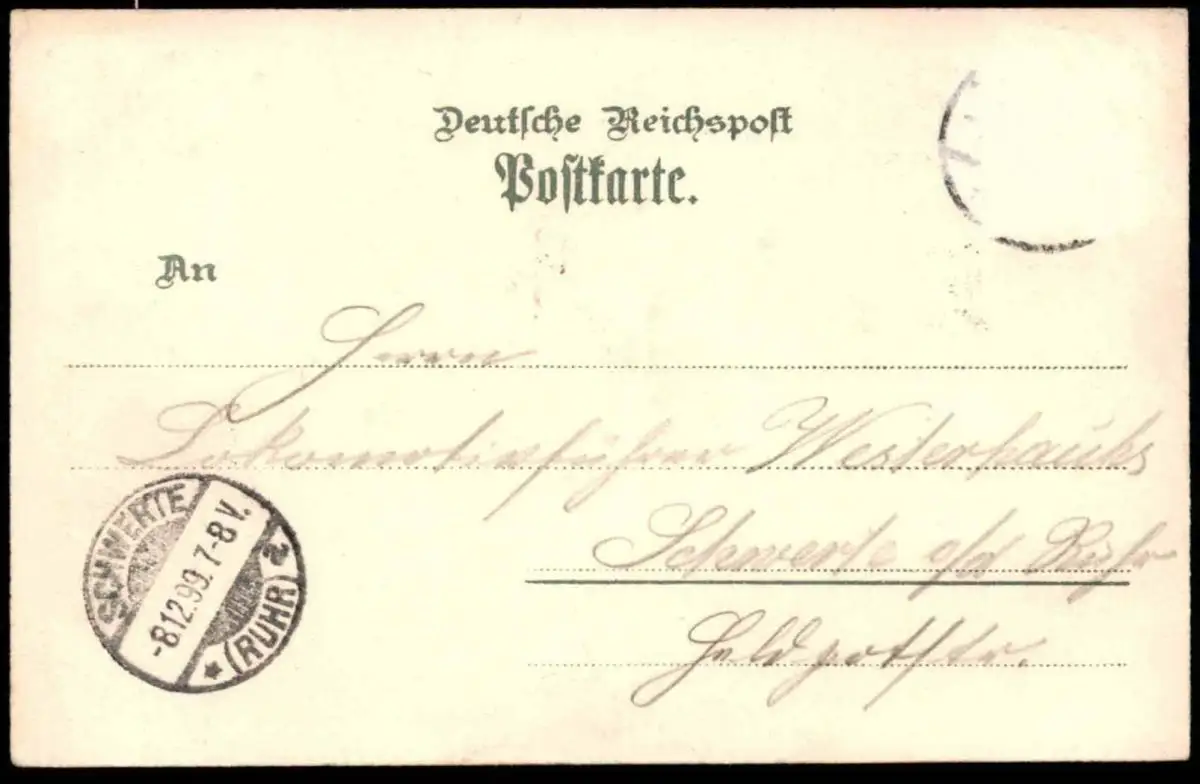 Deutsche Reichspost
Postkarte.
An
Herrn
Lokomotivführer Westerhaus
Schwerte a/d Ruhr
Feldpotstr.
SCHWERTE
-8.12.99.7-8V.
* (RUHR) 2